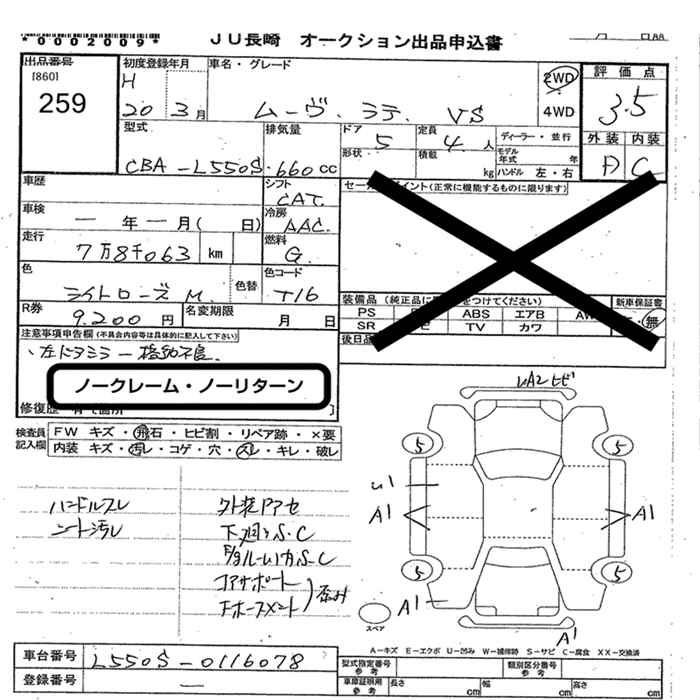 *0002009* JU長崎 オークション出品申込書
出品番号 初度登録年月 車名・グレード 評価点
[860] H 2WD
259 20 3月 ムーヴ ラテ VS 4WD 3.5
型式 排気量 ドア 5 定員 4人 ディーラー・並行 外装 内装
形状 積載 kg モデル年式 年 ハンドル 左・右 A C
CBA-L550S 660cc
車歴 シフト CAT セールスポイント(正常に機能するものに限ります)
車検 ー年ー月( 日) 冷房 AAC
走行 7万8千063 km 燃料 G
色 色替 色コード 装備品(純正品に をつけてください) 新車保証書
ライトローズM T16 PS ABS エアB AW ・無
R券 9,200円 名変期限 月 日 SR TV カワ
注意事項申告欄(不具合内容等は具体的に記入して下さい) 後日品
・左ドアミラー 格納不良
ノークレーム・ノーリターン
修復歴
検査員記入欄 FW キズ・飛石・ヒビ割・リペア跡・×要
内装 キズ・汚レ・コゲ・穴・スレ・キレ・破レ
UA2ヒビ
5 5
U1
ハンドルスレ 外装PアセA1 A1
シート汚レ 下廻りS.C
F内ルームカS.C
コアサポート
Fホースメント 歪み
5 5
A1
スペア A1
A-キズ E-エクボ U-凹み W-補修跡 S-サビ C-腐食 XX-交換済
車台番号 L550S-0116078 型式指定番号 参考 類別区分番号 参考
登録番号 ー 車庫証明用 参考 長さ cm 幅 cm 高さ cm